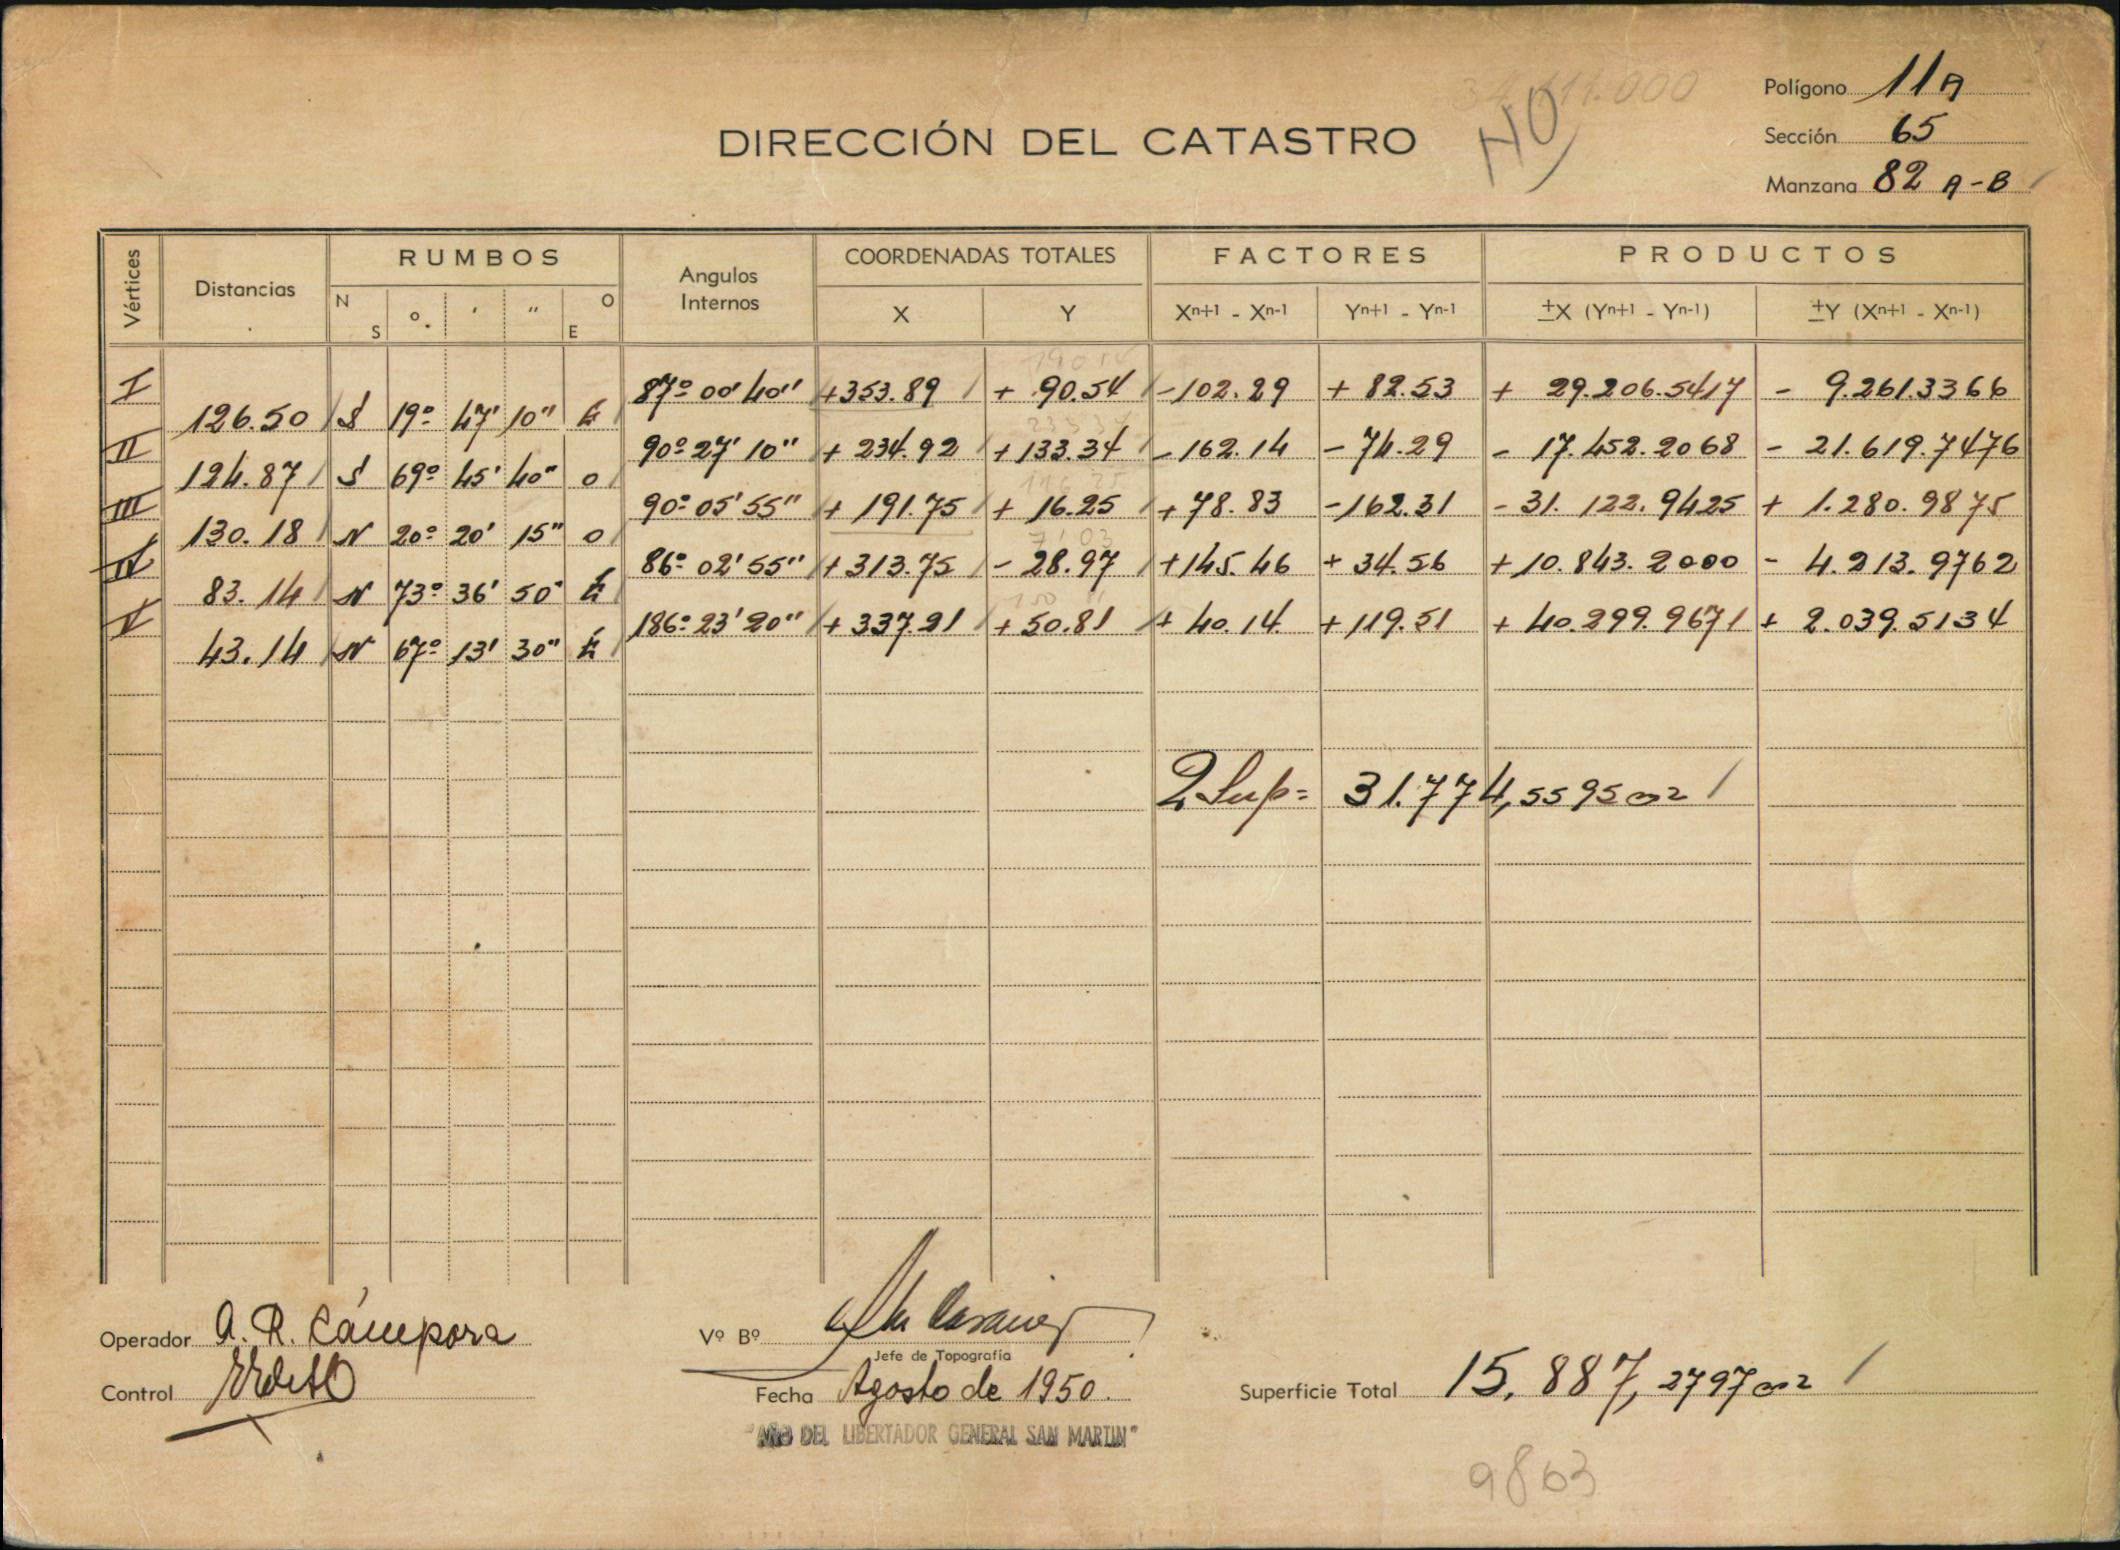 34.111.000
NO
Polígono 11A
DIRECCIÓN DEL CATASTRO
Sección 65
Manzana 82 A-B
Vértices Distancias RUMBOS Angulos Internos COORDENADAS TOTALES FACTORES PRODUCTOS
N S o. ' " O E X Y Xn+1 - Xn-1 Yn+1 - Yn-1 ±X (Yn+1 - Yn-1) ±Y (Xn+1 - Xn-1)
I 87º 00' 40" +353.89 + 90.54 -102.29 + 82.53 + 29.206.5417 - 9.261.3366
126.50 S 19º 47' 10" E
II 90º 27' 10" + 234.92 +133.34 -162.14 - 74.29 - 17.452.2068 - 21.619.7476
124.87 S 69º 45' 40" O
III 90º 05' 55" + 191.75 + 16.25 +78.83 -162.31 - 31.122.9425 + 1.280.9875
130.18 N 20º 20' 15" O
IV 86º 02' 55" +313.75 - 28.97 +145.46 + 34.56 +10.843.2000 - 4.213.9762
83.14 N 73º 36' 50" E
V 186º 23' 20" + 337.21 +50.81 + 40.14 +119.51 + 40.299.9671 + 2.039.5134
43.14 N 67º 13' 30" E
2 Sup= 31.774,5595 m2
Operador A. R. Cámpora
Vº Bº
Jefe de Topografía
Control
Fecha Agosto de 1950.
Superficie Total 15.887,2797 m2
"AÑO DEL LIBERTADOR GENERAL SAN MARTIN"
9863